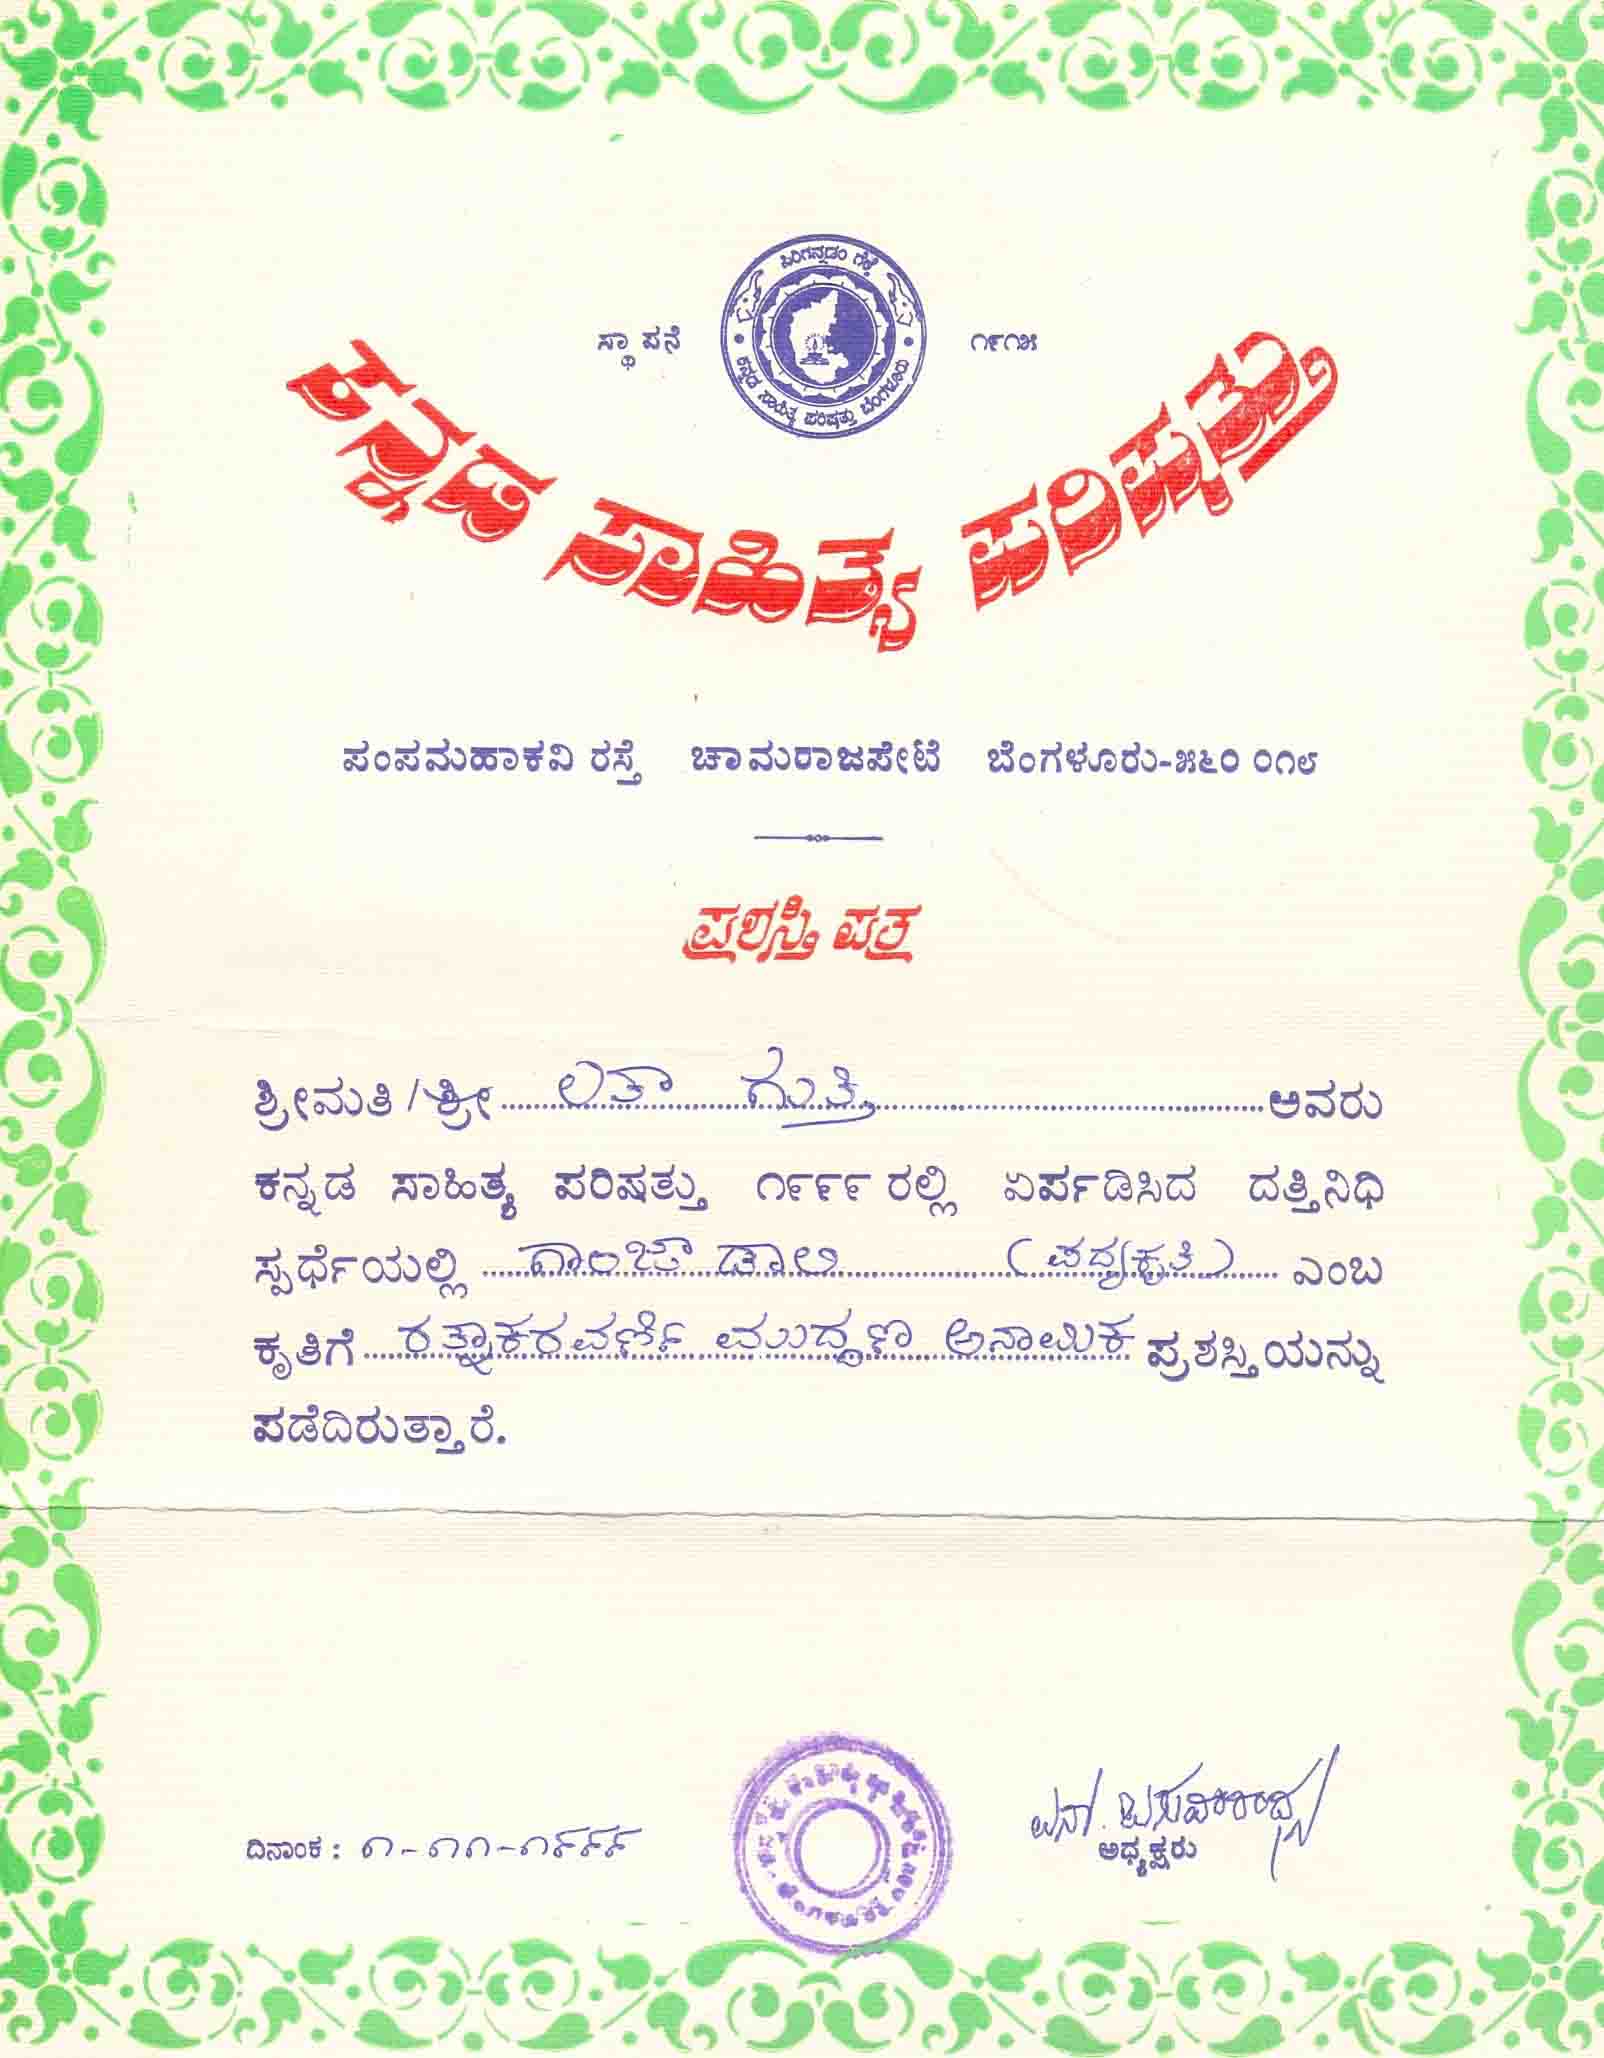 ಸಿರಿಗನ್ನಡಂ ಗೆಲ್ಗೆ
ಕನ್ನಡ ಸಾಹಿತ್ಯ ಪರಿಷತ್ತು ಬೆಂಗಳೂರು
ಸ್ಥಾಪನೆ ೧೯೧೫
ಕನ್ನಡ ಸಾಹಿತ್ಯ ಪರಿಷತ್ತು
ಪಂಪಮಹಾಕವಿ ರಸ್ತೆ ಚಾಮರಾಜಪೇಟೆ ಬೆಂಗಳೂರು-೫೬೦ ೦೧೮
ಪ್ರಶಸ್ತಿ ಪತ್ರ
ಶ್ರೀಮತಿ /ಶ್ರೀ ಲತಾ ಗುತ್ತಿ ಅವರು
ಕನ್ನಡ ಸಾಹಿತ್ಯ ಪರಿಷತ್ತು ೧೯೯೯ ರಲ್ಲಿ ಏರ್ಪಡಿಸಿದ ದತ್ತಿನಿಧಿ
ಸ್ಪರ್ಧೆಯಲ್ಲಿ ಗಾಂಜಾ ಡಾಲಿ (ಪದ್ಯಕೃತಿ) ಎಂಬ
ಕೃತಿಗೆ ರತ್ನಾಕರವರ್ಣಿ ಮುದ್ದಣ ಅನಾಮಿಕ ಪ್ರಶಸ್ತಿಯನ್ನು
ಪಡೆದಿರುತ್ತಾರೆ.
ದಿನಾಂಕ : ೧-೧೧-೧೯೯೯
ಅಧ್ಯಕ್ಷರು